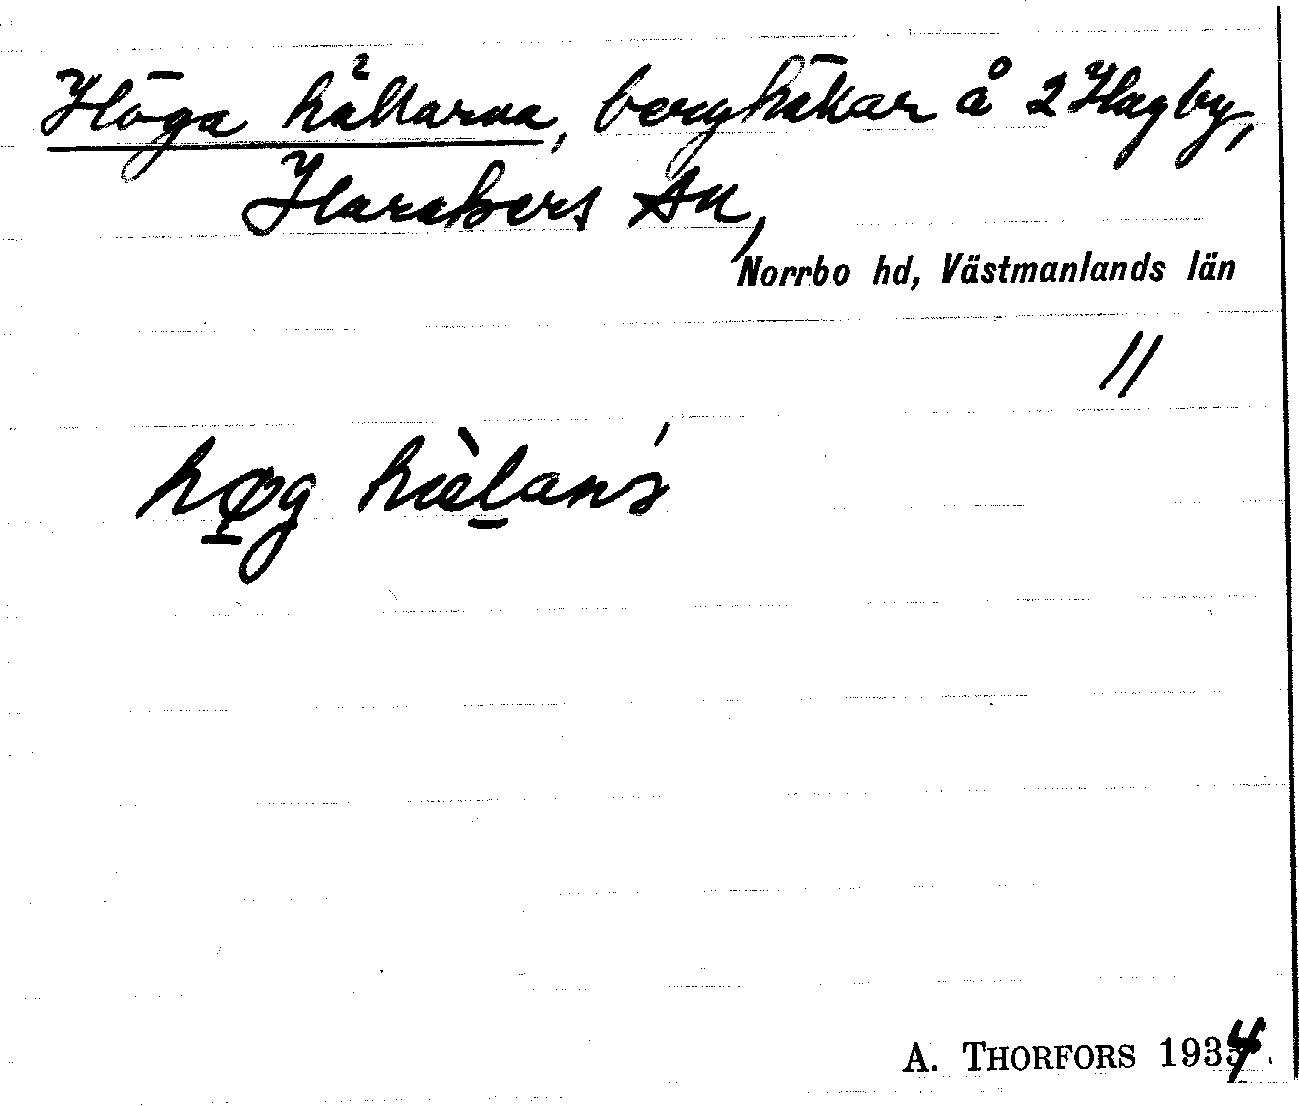 Höga hällarna, berghällar å 2 Hagby,
Harakers sn,
Norrbo hd, Västmanlands län
//
høg
A. THORFORS 1934.